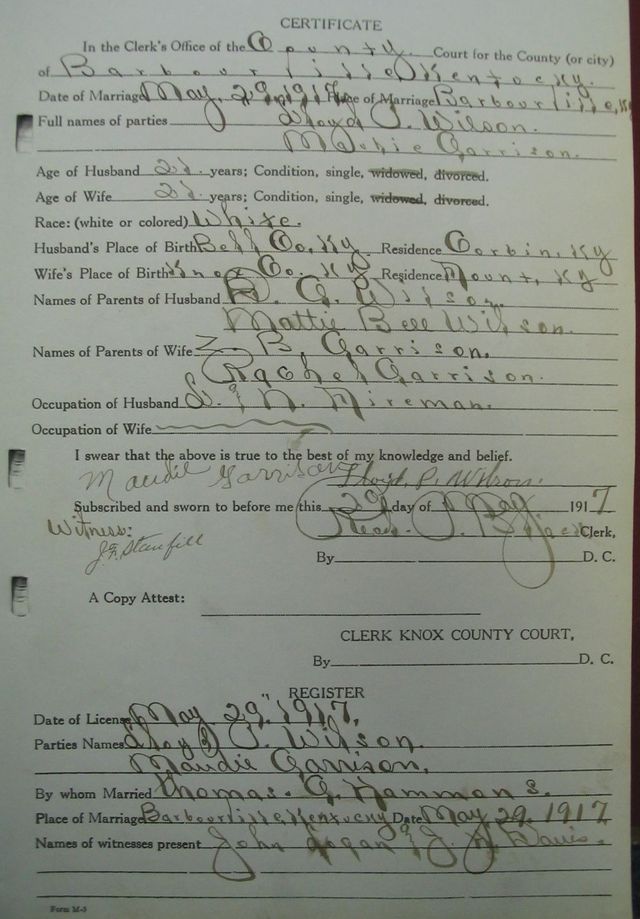 CERTIFICATE
In the Clerk's Office of the County Court for the County (or city)
of Barbourville, Kentucky.
Date of Marriage May, 29, 1917 Place of Marriage Barbourville, Ky
Full names of parties Lloyd P. Wilson.
Garrison.
Age of Husband 21. years; Condition, single, widowed, divorced.
Age of Wife 21. years; Condition, single, widowed, divorced.
Race: (white or colored) White.
Husband's Place of Birth Bell Co, Ky. Residence Corbin, Ky
Wife's Place of Birth Knox Co. Ky Residence Mount, Ky
Names of Parents of Husband A. G. Wilson.
Mattie Bell Wilson.
Names of Parents of Wife Z. B. Garrison.
Rachel Garrison.
Occupation of Husband L. & N. Fireman.
Occupation of Wife
I swear that the above is true to the best of my knowledge and belief.
Maudie Garrison Lloyd P. Wilson.
Subscribed and sworn to before me this 29 day of May 1917
Witness: Read P. Black Clerk,
J.F. Stanfill
By D. C.
A Copy Attest:
CLERK KNOX COUNTY COURT,
By D. C.
REGISTER
Date of License May 29, 1917,
Parties Names Lloyd P. Wilson.
Maudie Garrison,
By whom Married Thomas. G. Hammons.
Place of Marriage Barbourville, Kentucky Date May 29, 1917
Names of witnesses present John Logan & J. H. Davis.
Form M-3